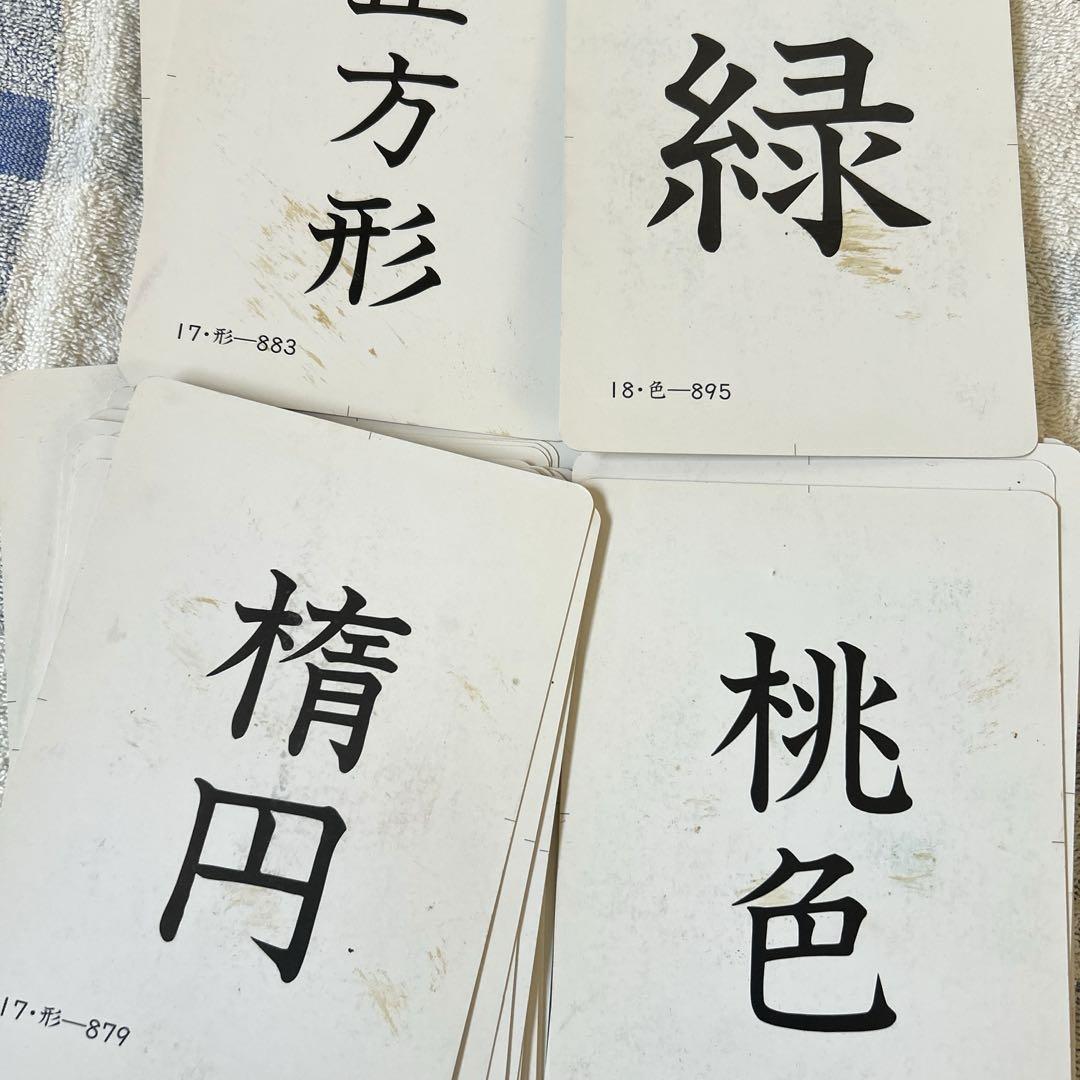 正方形
17・形—883
緑
18・色—895
楕円
17・形—879
桃色